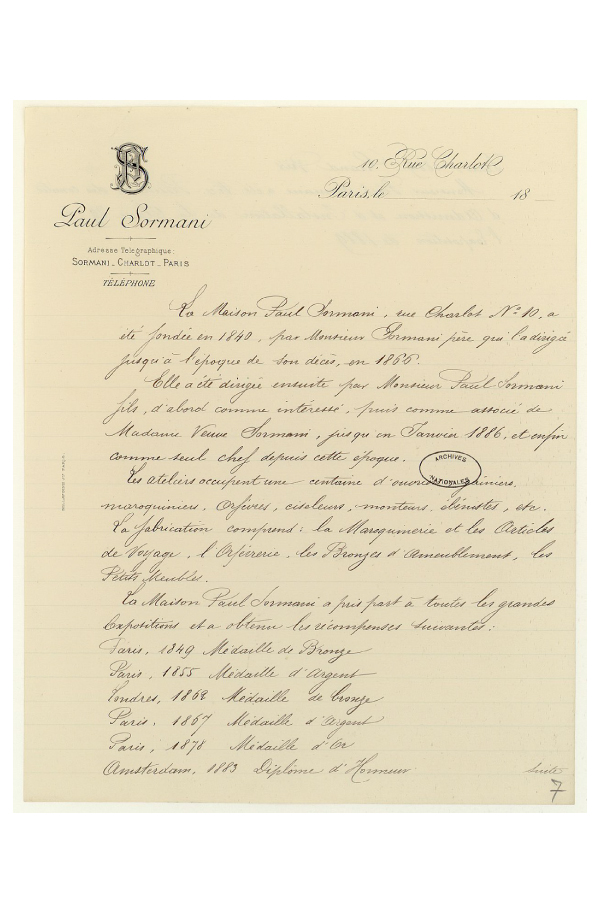 10, Rue Charlot
Paris, le 18
PS
Paul Sormani
Adresse Télégraphique:
SORMANI_CHARLOT_PARIS
TÉLÉPHONE
La Maison Paul Sormani, rue Charlot N° 10, a
été fondée en 1840, par Monsieur Sormani père qui l'a dirigée
jusqu'à l'époque de son décès, en 1866.
Elle a été dirigée ensuite par Monsieur Paul Sormani
fils, d'abord comme intéressé, puis comme associé de
Madame Veuve Sormani, jusqu'en Janvier 1886, et enfin
comme seul chef depuis cette époque.
ARCHIVES
NATIONALES
Les ateliers occupent une centaine d'ouvriers gainiers,
maroquiniers, Orfèvres, ciseleurs, monteurs, ébénistes, etc.
La fabrication comprend: la Maroquinerie et les Articles
de Voyage, l'Orfèvrerie, les Bronzes d'Ameublement, les
Petits Meubles.
La Maison Paul Sormani a pris part à toutes les grandes
Expositions et a obtenu les récompenses suivantes:
Paris, 1849 Médaille de Bronze
Paris, 1855 Médaille d'Argent
Londres, 1862 Médaille de bronze
Paris, 1867 Médaille d'Argent
Paris, 1878 Médaille d'Or
Amsterdam, 1883 Diplôme d'Honneur
Suite
7